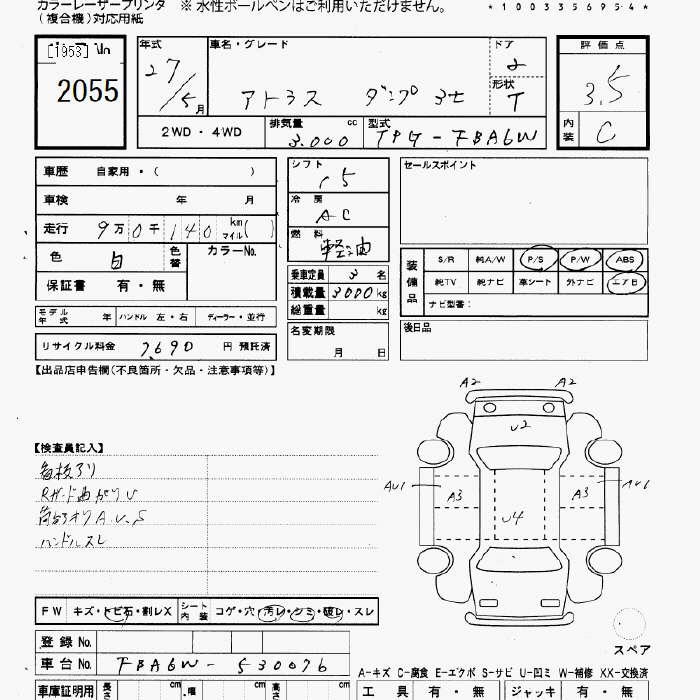 カラーレーザープリンタ ※ 水性ボールペンはご利用いただけません。
(複合機)対応用紙
* 1 0 0 3 3 5 6 9 5 4 *
[1953]
2055
年式
27/5月
車名・グレード
アトラス ダンプ 3t
ドア
2
形状
T
評価点
3.5
内装
C
2WD・4WD
排気量 cc
3.000
型式
TPG-FBA6W
車歴 自家用・( )
車検 年 月
走行 9万0千140 km マイル( )
色 白 色替 カラーNo.
保証書 有・無
モデル年式 年 ハンドル 左・右 ディーラー・並行
リサイクル料金 7,690 円 預託済
シフト
15
冷房
AC
燃料
軽油
乗車定員 3 名
積載量 3000 kg
総重量 kg
名変期限
月 日
セールスポイント
装備品
S/R 純A/W P/S P/W ABS
純TV 純ナビ 車シート 外ナビ エアB
ナビ型番:
後日品
【出品店申告欄(不良箇所・欠品・注意事項等)】
【検査員記入】
Rガード曲がりU
荷台オリA.U.S
ハンドルスレ
A2 A2
U2
AU1 A3 A3 AU1
U4
スペア
FW キズ・トビ石・割レX シート内装 コゲ・穴・汚レ・シミ・破レ・スレ
登録No.
車台No. FBA6W-530076
A-キズ C-腐食 E-エクボ S-サビ U-凹ミ W-補修 XX-交換済
車庫証明用 長さ cm ・幅 cm 高さ cm
工具 有・無 ジャッキ 有・無